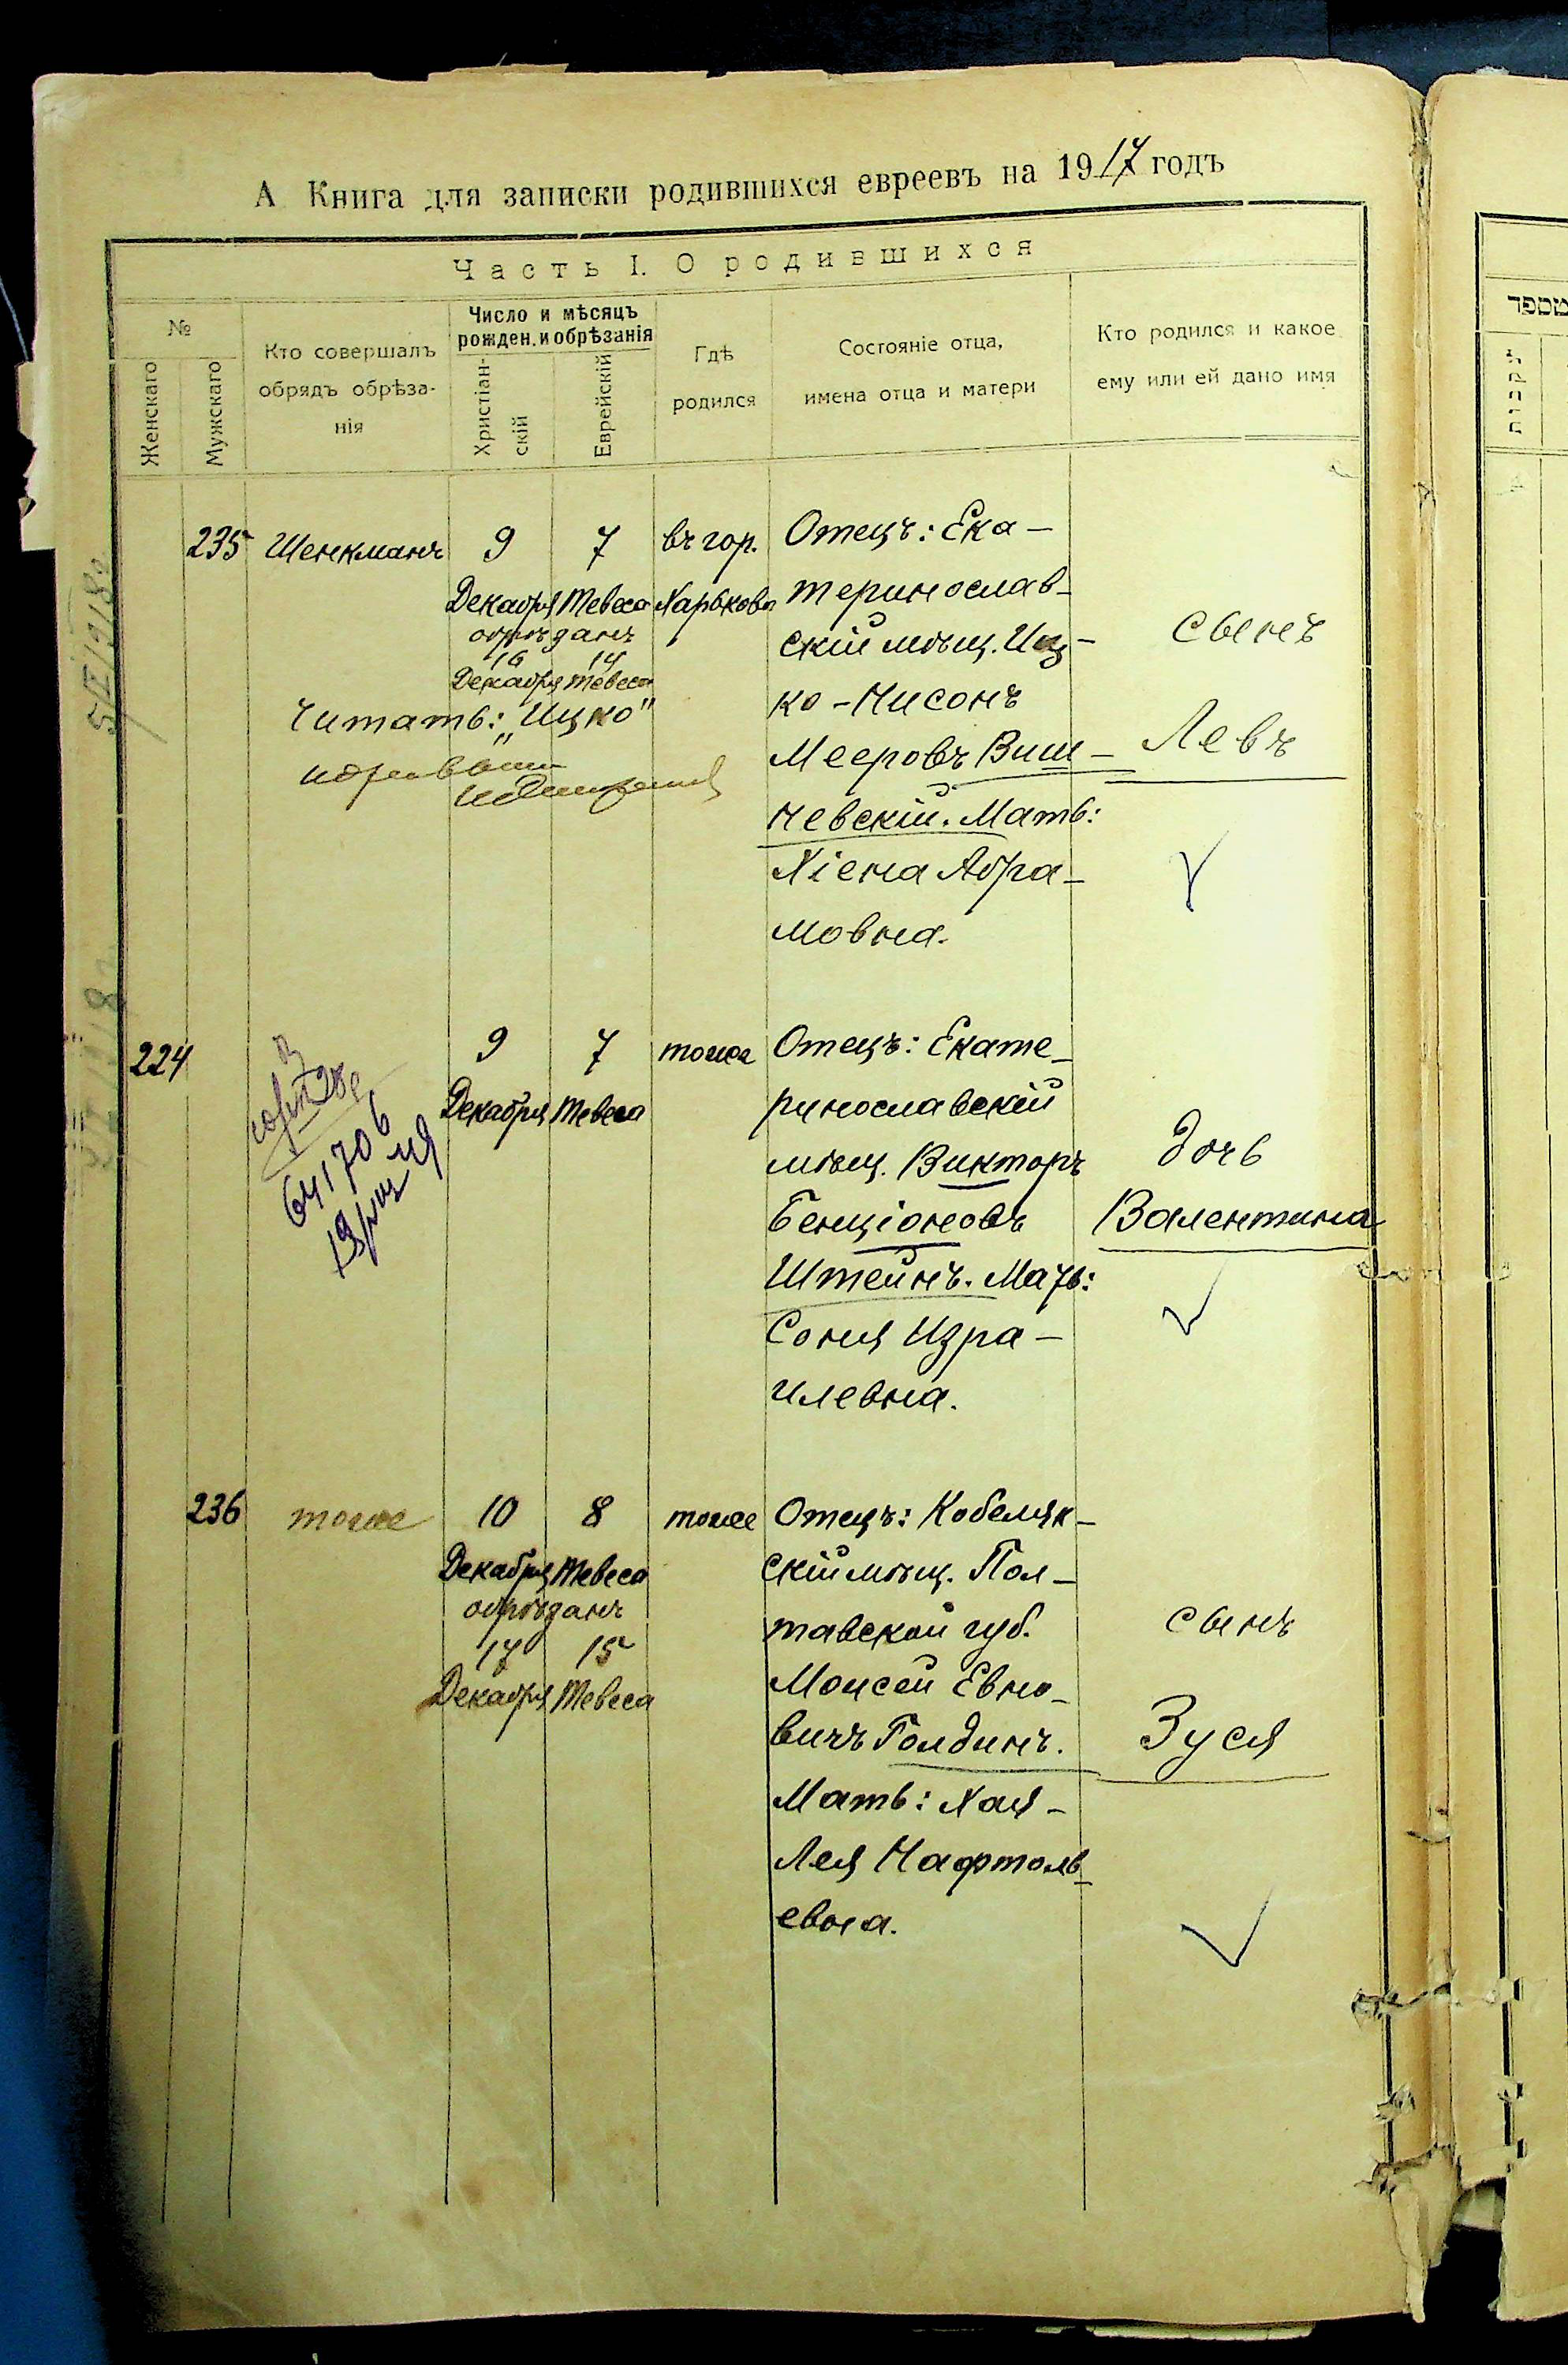 А Книга для записки родившихся евреевъ на 1917 годъ
Часть I. О родившихся
№
Женскаго
Мужскаго
Кто совершалъ
обрядъ обрѣза-
нія
Число и мѣсяцъ
рожден. и обрѣзанія
Христіан-
скій
Еврейскій
Гдѣ
родился
Состояніе отца,
имена отца и матери
Кто родился и какое
ему или ей дано имя
235 Шенкманъ
9 7
Декабря Тевеса
обрѣзанъ
16 14
Декабря Тевеса
въ гор.
Харьковѣ
Читать: „Ицко"
Отецъ: Ека-
теринослав-
скій мѣщ. Иц-
ко-Нисонъ
Мееровъ Виш-
невскій. Мать:
Хіена Абра-
мовна.
сынъ
Левъ
224
641706
9 7
Декабря Тевеса
тоже
Отецъ: Екате-
ринославскій
мѣщ. Викторъ
Бенціоновъ
Штейнъ. Мать:
Соня Изра-
илевна.
дочь
Валентина
236 тоже
10 8
Декабря Тевеса
обрѣзанъ
17 15
Декабря Тевеса
тоже
Отецъ: Кобеляк-
скій мѣщ. Пол-
тавской губ.
Моисей Евно-
вичъ Голдинъ.
Мать: Хая-
Лея Нафтоль-
евна.
сынъ
Зуся
מספר
נקבות